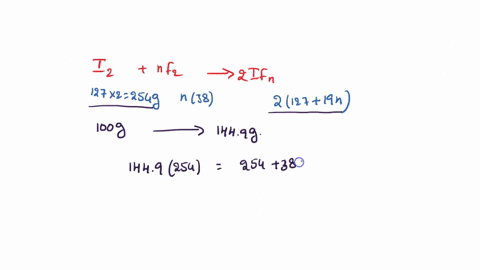 I₂ + nf₂ → 2Ifₙ
127×2=254g n(38) 2(127+19n)
100g → 144.9g.
144.9(254) = 254+38